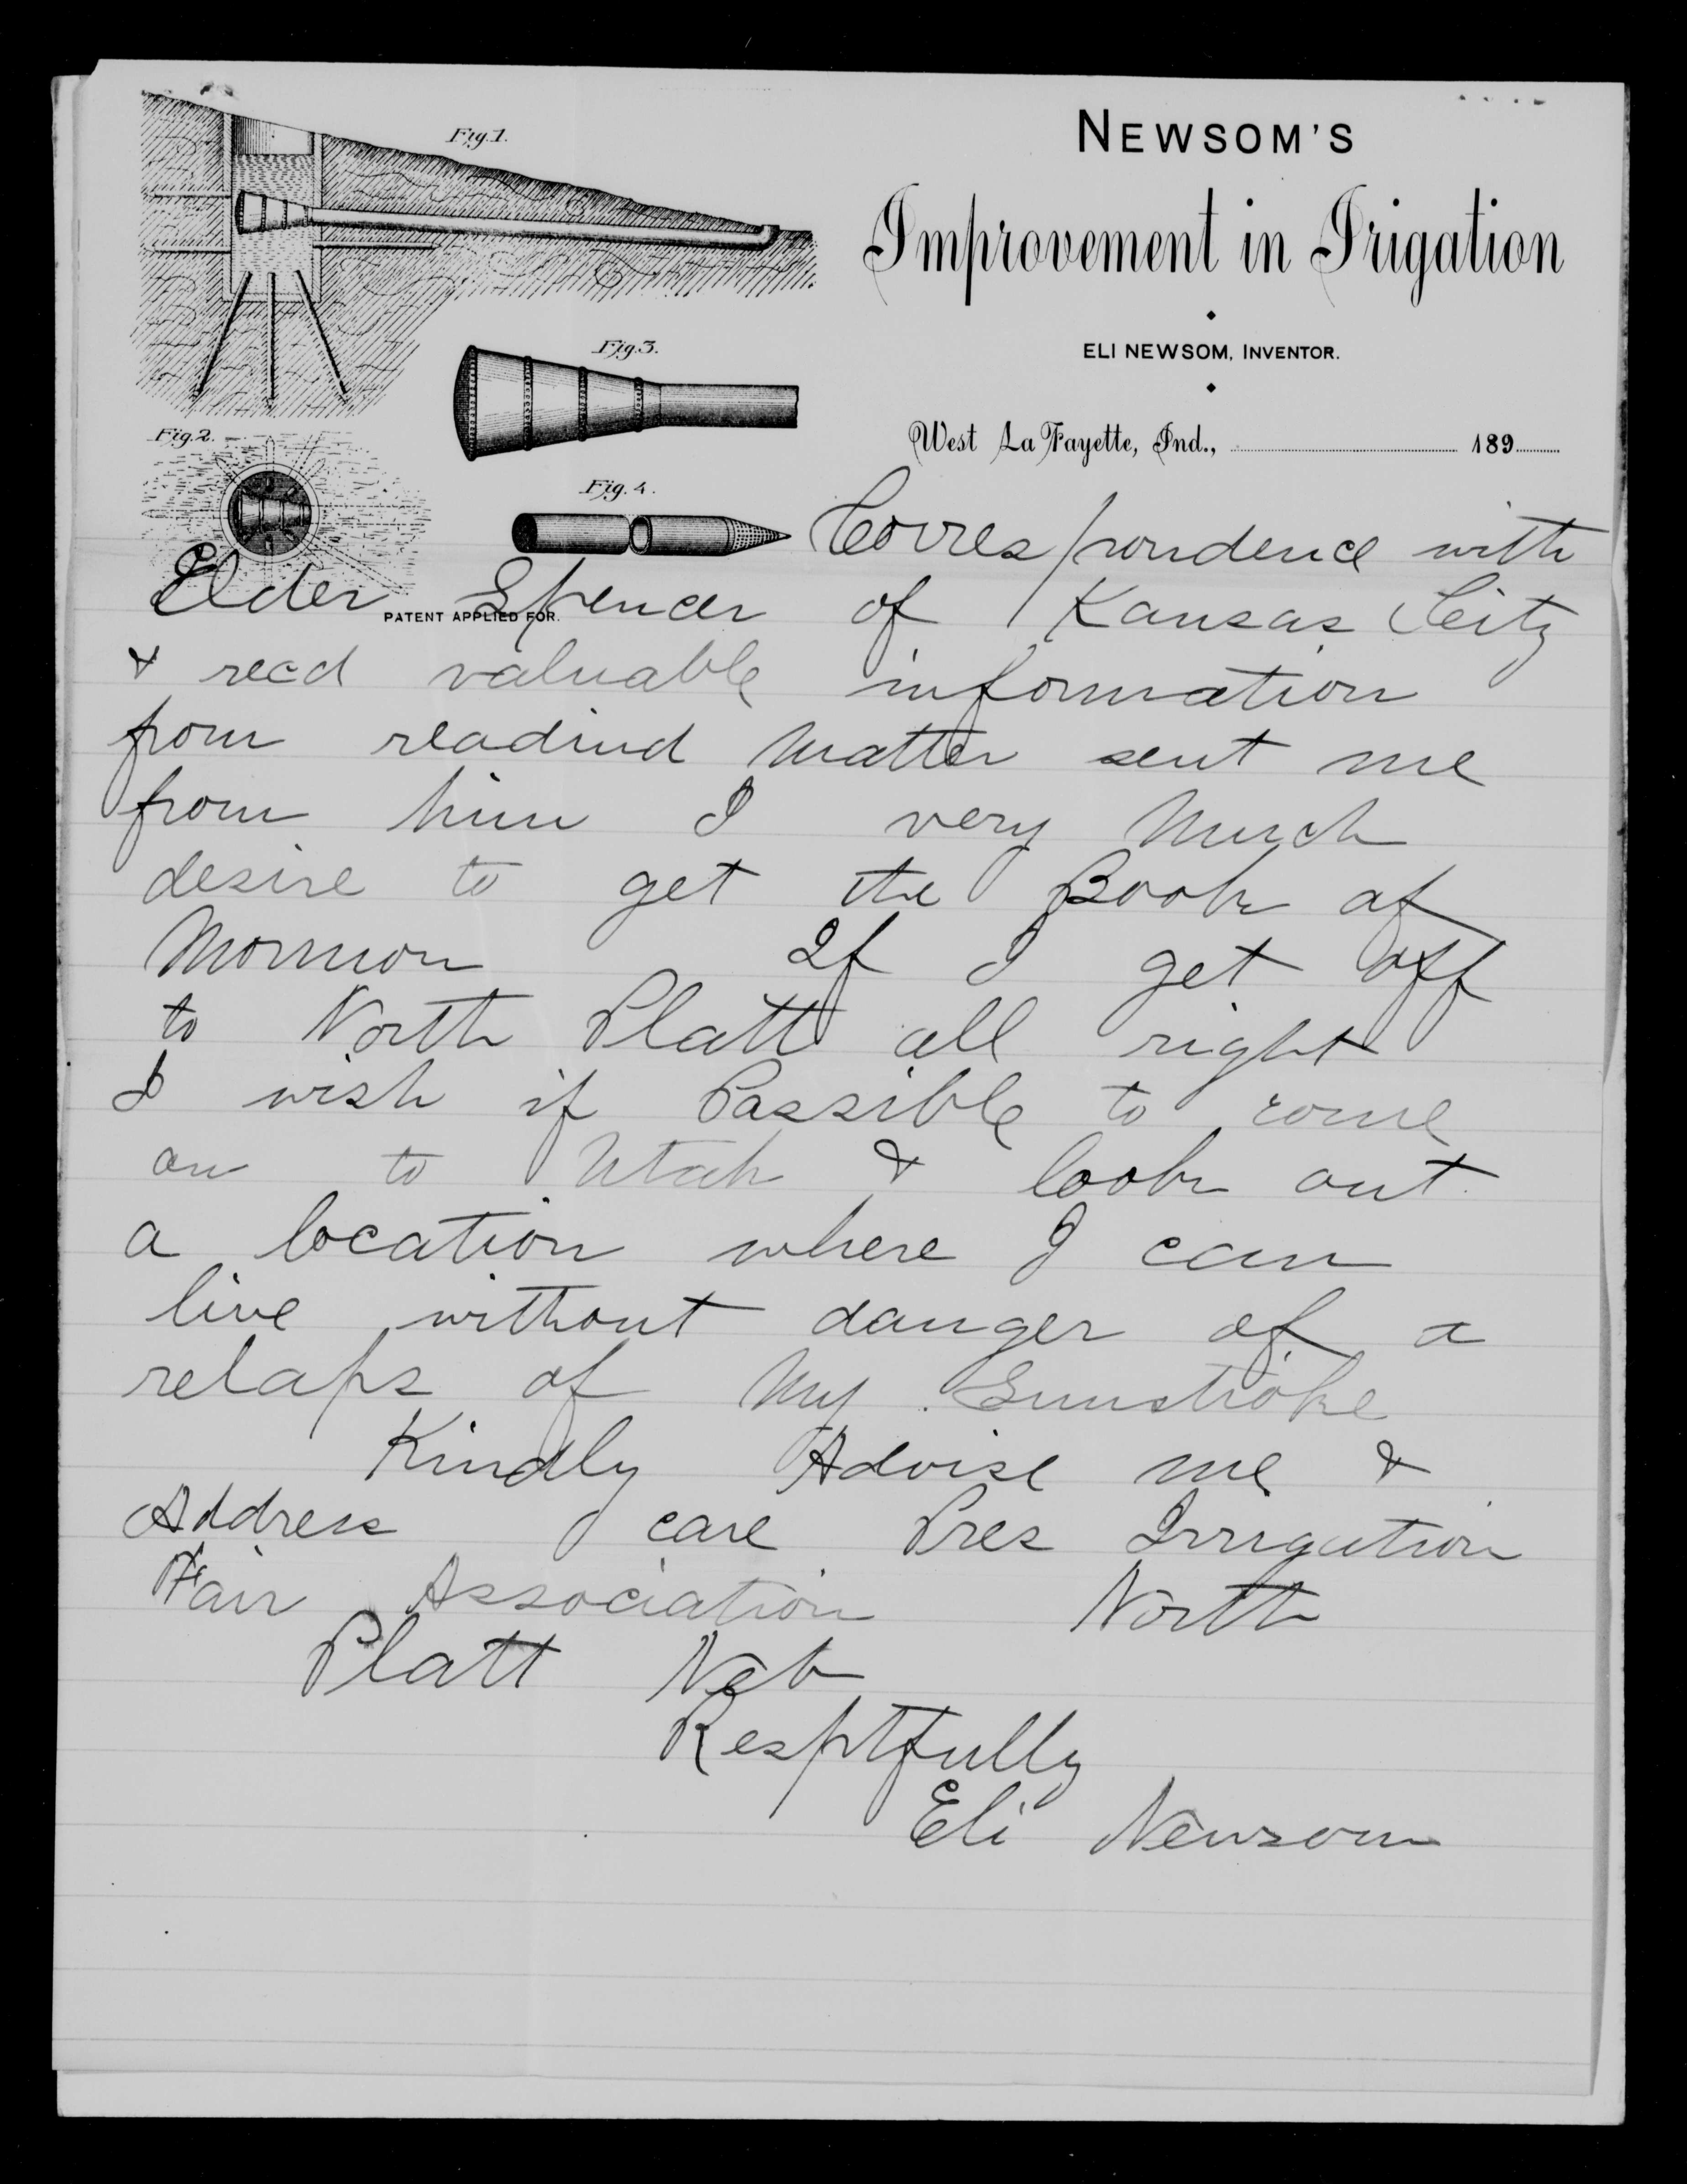 Fig.1.
NEWSOM'S
Improvement in Irigation
ELI NEWSOM, INVENTOR.
Fig.3.
West La Fayette, Ind., 189
Fig.2.
Fig.4.
Correspondence with
Elder Spencer of Kansas City
PATENT APPLIED FOR.
& recd valuable information
from readind matter sent me
from him I very Much
desire to get the Book of
Mormon If I get off
to North Platt all right
I wish if Possible to come
on to Utah & look out
a location where I can
live without danger of a
relaps of My Sunstroke
Kindly Advise me &
Address care Pres Irrigation
Fair Association North
Platt Neb
Resptfully
Eli Newsom